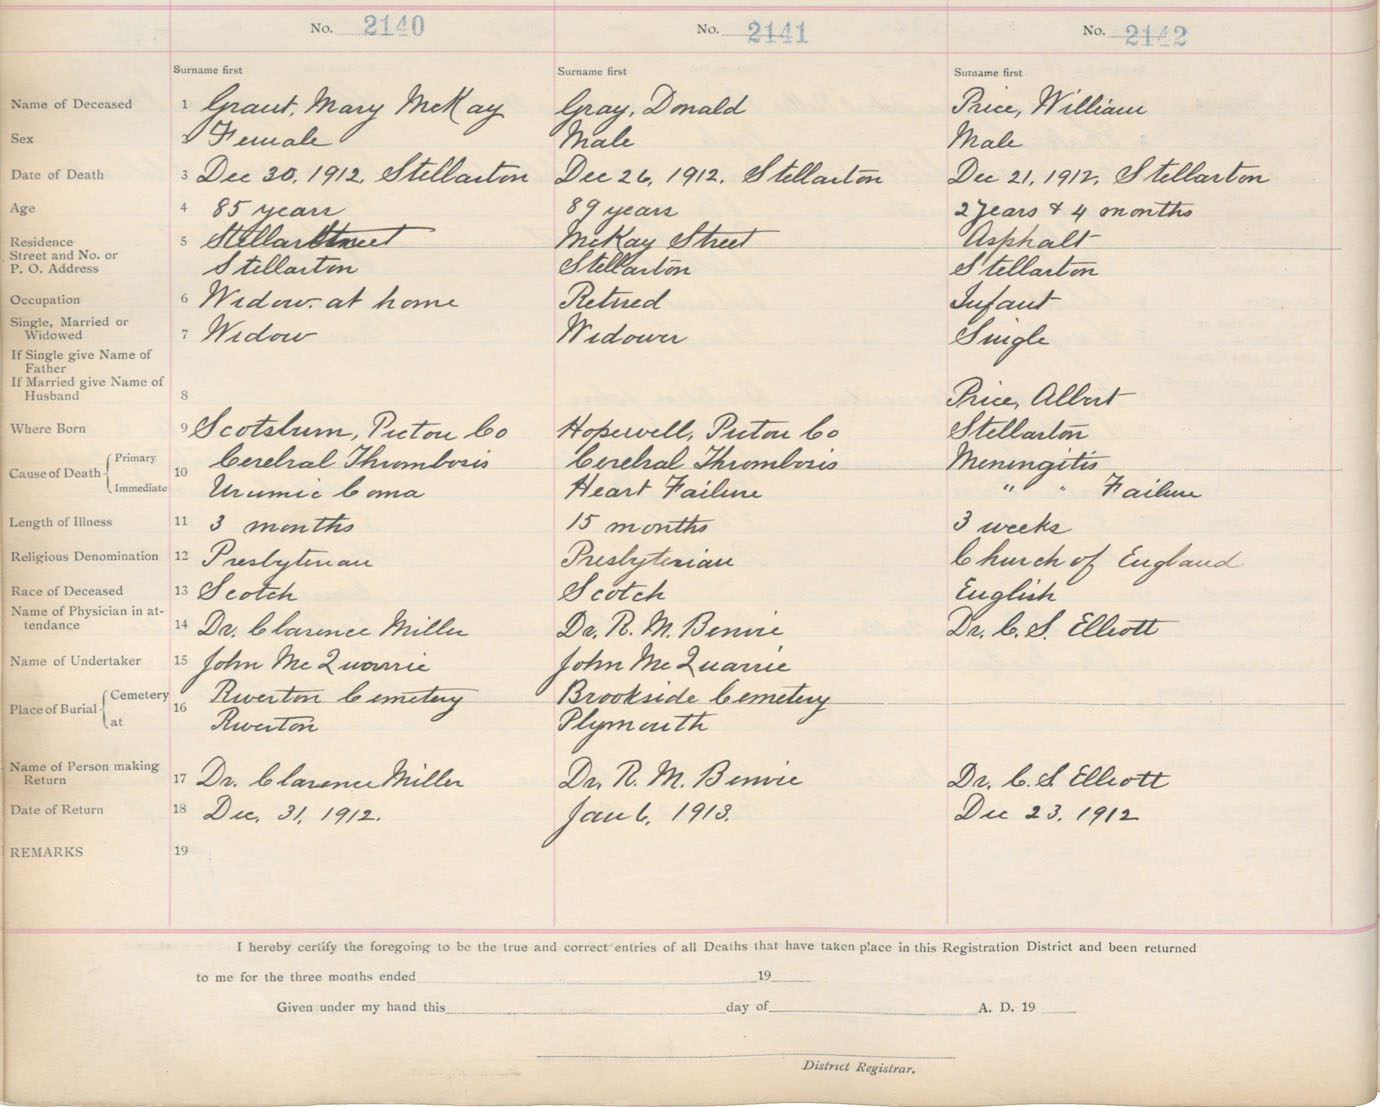 No. 2140 No. 2141 No. 2142
Surname first Surname first Surname first
Name of Deceased 1 Grant, Mary McKay Gray, Donald Price, William
Sex 2 Female Male Male
Date of Death 3 Dec 30, 1912, Stellarton Dec 26, 1912, Stellarton Dec 21, 1912, Stellarton
Age 4 85 years 89 years 2 years & 4 months
Residence 5 Street McKay Street Asphalt
Street and No. or
P. O. Address Stellarton Stellarton Stellarton
Occupation 6 Widow. at home Retired Infant
Single, Married or
Widowed 7 Widow Widower Single
If Single give Name of
Father
If Married give Name of
Husband 8 Price, Albert
Where Born 9 Scotsburn, Pictou Co Hopewell, Pictou Co Stellarton
Cause of Death 10 Primary Cerebral Thrombosis Cerebral Thrombosis Meningitis
Immediate Uraemic Coma Heart Failure " " Failure
Length of Illness 11 3 months 15 months 3 weeks
Religious Denomination 12 Presbyterian Presbyterian Church of England
Race of Deceased 13 Scotch Scotch English
Name of Physician in at-
tendance 14 Dr. Clarence Miller Dr. R. M. Benvie Dr. C. S. Elliott
Name of Undertaker 15 John McQuarrie John McQuarrie
Place of Burial 16 Cemetery Riverton Cemetery Brookside Cemetery
at Riverton Plymouth
Name of Person making
Return 17 Dr. Clarence Miller Dr. R. M. Benvie Dr. C. S Elliott
Date of Return 18 Dec, 31, 1912. Jan 6, 1913. Dec 23, 1912
REMARKS 19
I hereby certify the foregoing to be the true and correct entries of all Deaths that have taken place in this Registration District and been returned
to me for the three months ended 19
Given under my hand this day of A. D. 19
District Registrar.